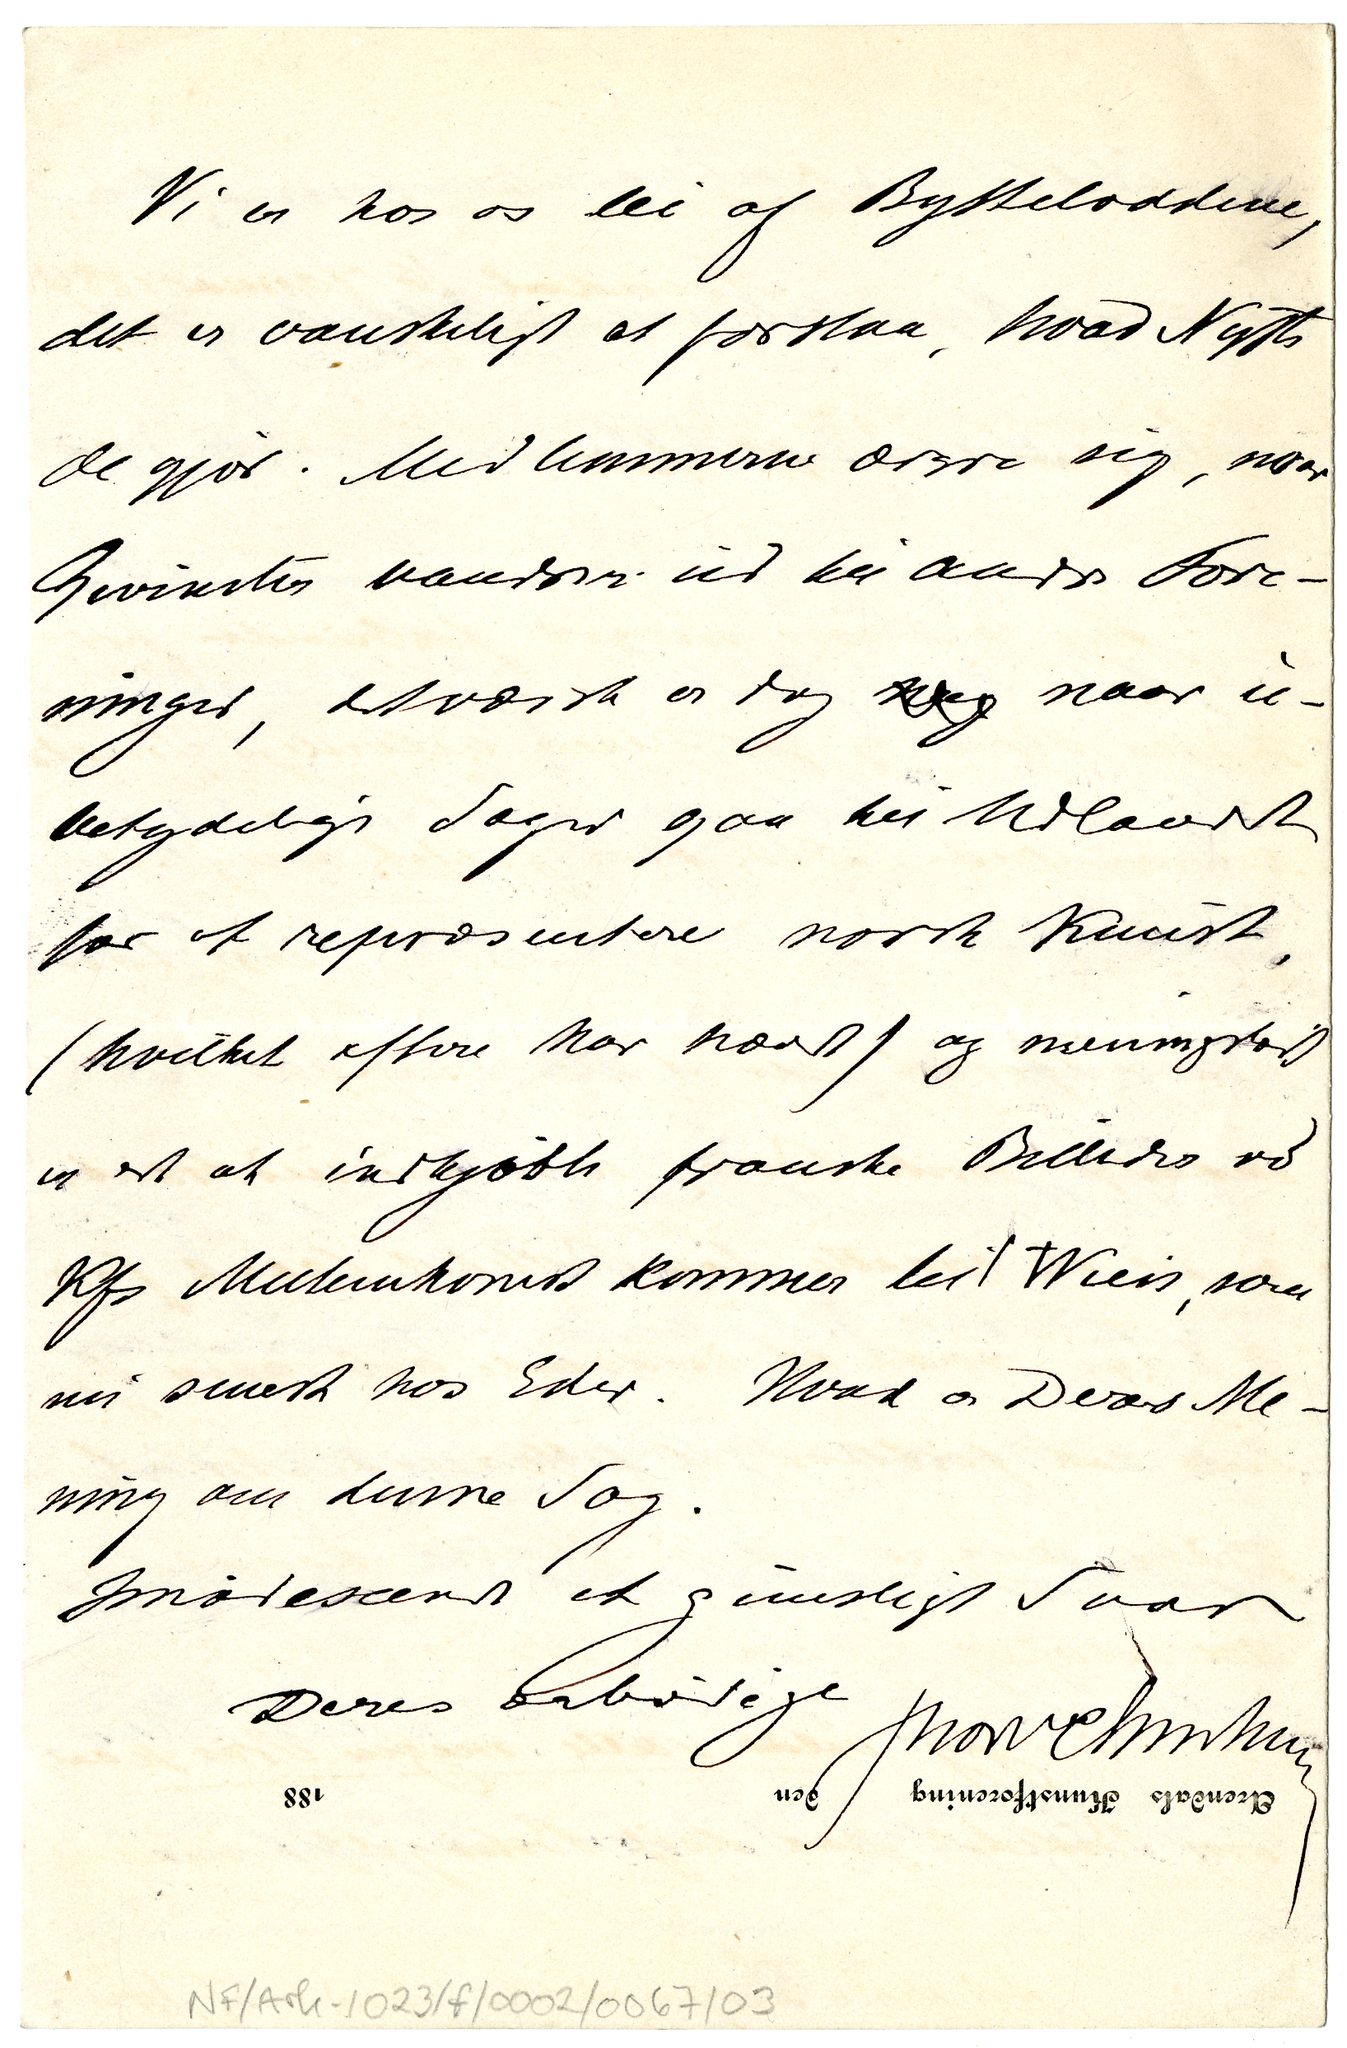 Vi er hos os lei af Bytteloddene,
det er vanskeligt at forstaa, hvad Nytte
de gjør. Medlemmerne ærgre sig, naar
Gevinster vandrer ud til andre Fore-
ninger, det værste er dog naar u-
betydelige Sager gaa til Udlandet
for at repræsentere norsk Kunst,
(hvilket oftere har hændt) og meningsløst
er det at indkjøbte franske Billeder
Kfs kommer til Wien, som
nu senest hos Eder. Hvad er Deres Me-
ning om denne Sag.
Imødeseende et gunstigt Svar
Deres ærbødige
Arendals Kunstforening den 188
NF/Ark-1023/f/0002/0067/03